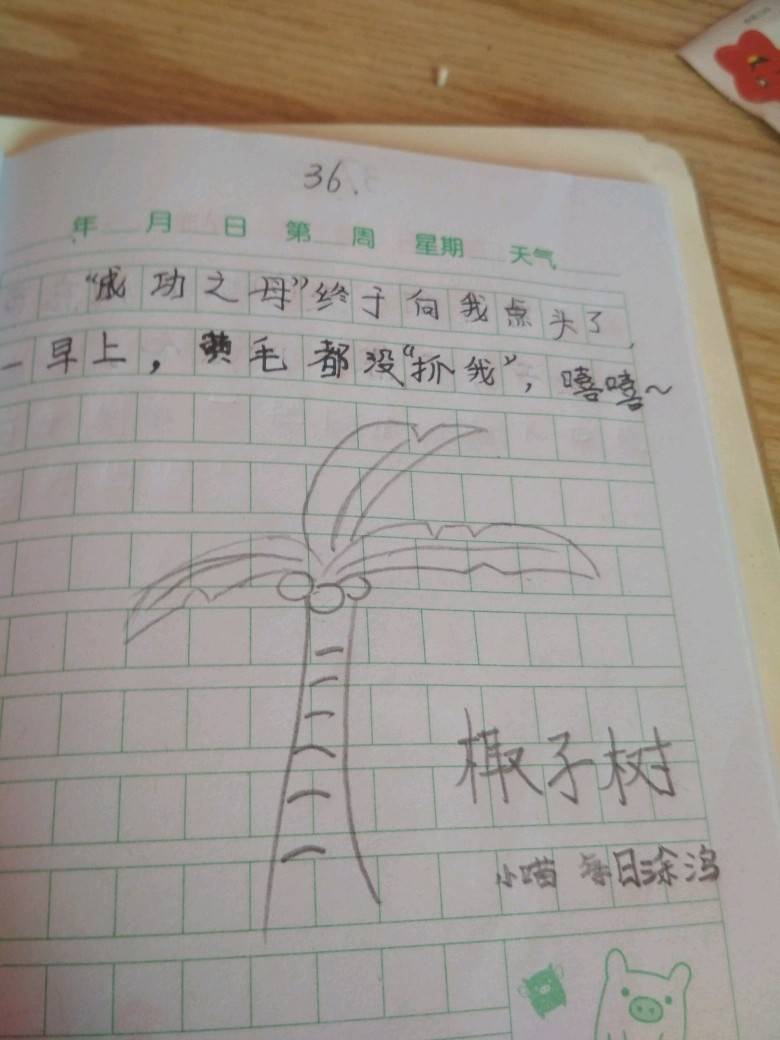 36.
年 月 日 第 周 星期 天气
“成功之母”终于向我点头了,
一早上,黄毛都没“抓我”,嘻嘻~
椰子树
小喵 每日涂鸦